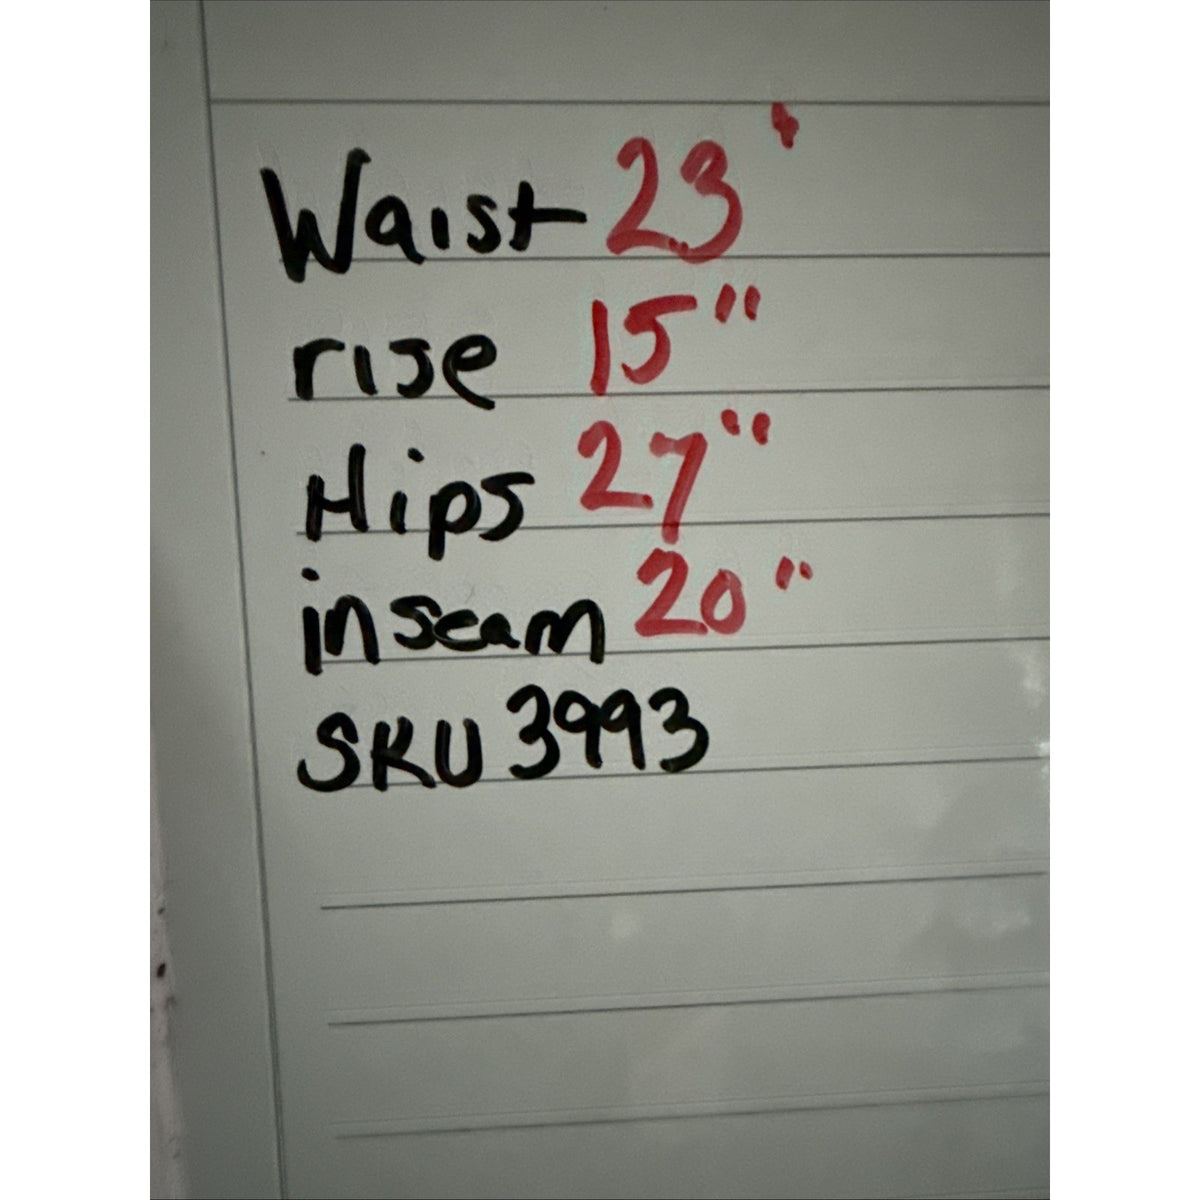 Waist 23'
rise 15"
Hips 27"
inseam 20"
SKU 3993